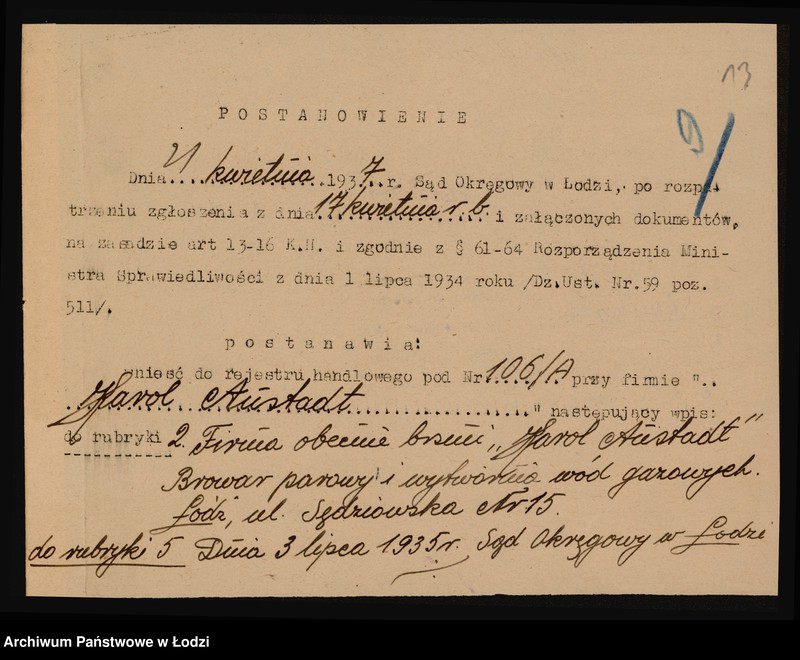 13
9/
POSTANOWIENIE
Dnia 21 kwietnia 1937 r. Sąd Okręgowy w Łodzi, po rozpa-
trzeniu zgłoszenia z dnia 17 kwietnia r.b. i załączonych dokumentów,
na zasadzie art 13-16 K.H. i zgodnie z § 61-64 Rozporządzenia Mini-
stra Sprawiedliwości z dnia 1 lipca 1934 roku /Dz.Ust. Nr.59 poz.
511/.
postanawia:
wnieść do rejestru handlowego pod Nr 106/A przy firmie "..
Karol Austadt" następujący wpis:
do rubryki 2. Firma obecnie brzmi: „Karol Austadt"
Browar parowy i wytwórnia wód gazowych.
Łódź, ul. Sędziowska Nr 15.
do rubryki 5 Dnia 3 lipca 1935 r. Sąd Okręgowy w Łodzi
Archiwum Państwowe w Łodzi